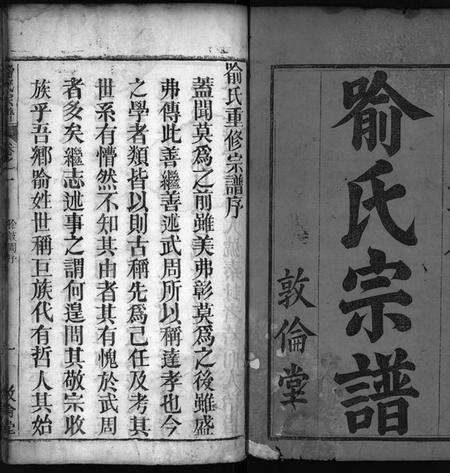 喻氏宗譜
敦倫堂
喻氏重修宗譜序
蓋聞莫爲之前雖美弗彰莫爲之後雖盛
弗傳此善繼善述武周所以稱達孝也今
之學者類皆以則古稱先爲己任及考其
世系有懵然不知其由者其有愧於武周
者多矣繼志述事之謂何遑問其敬宗收
族乎吾鄉喻姓世稱巨族代有哲人其始
敦倫堂